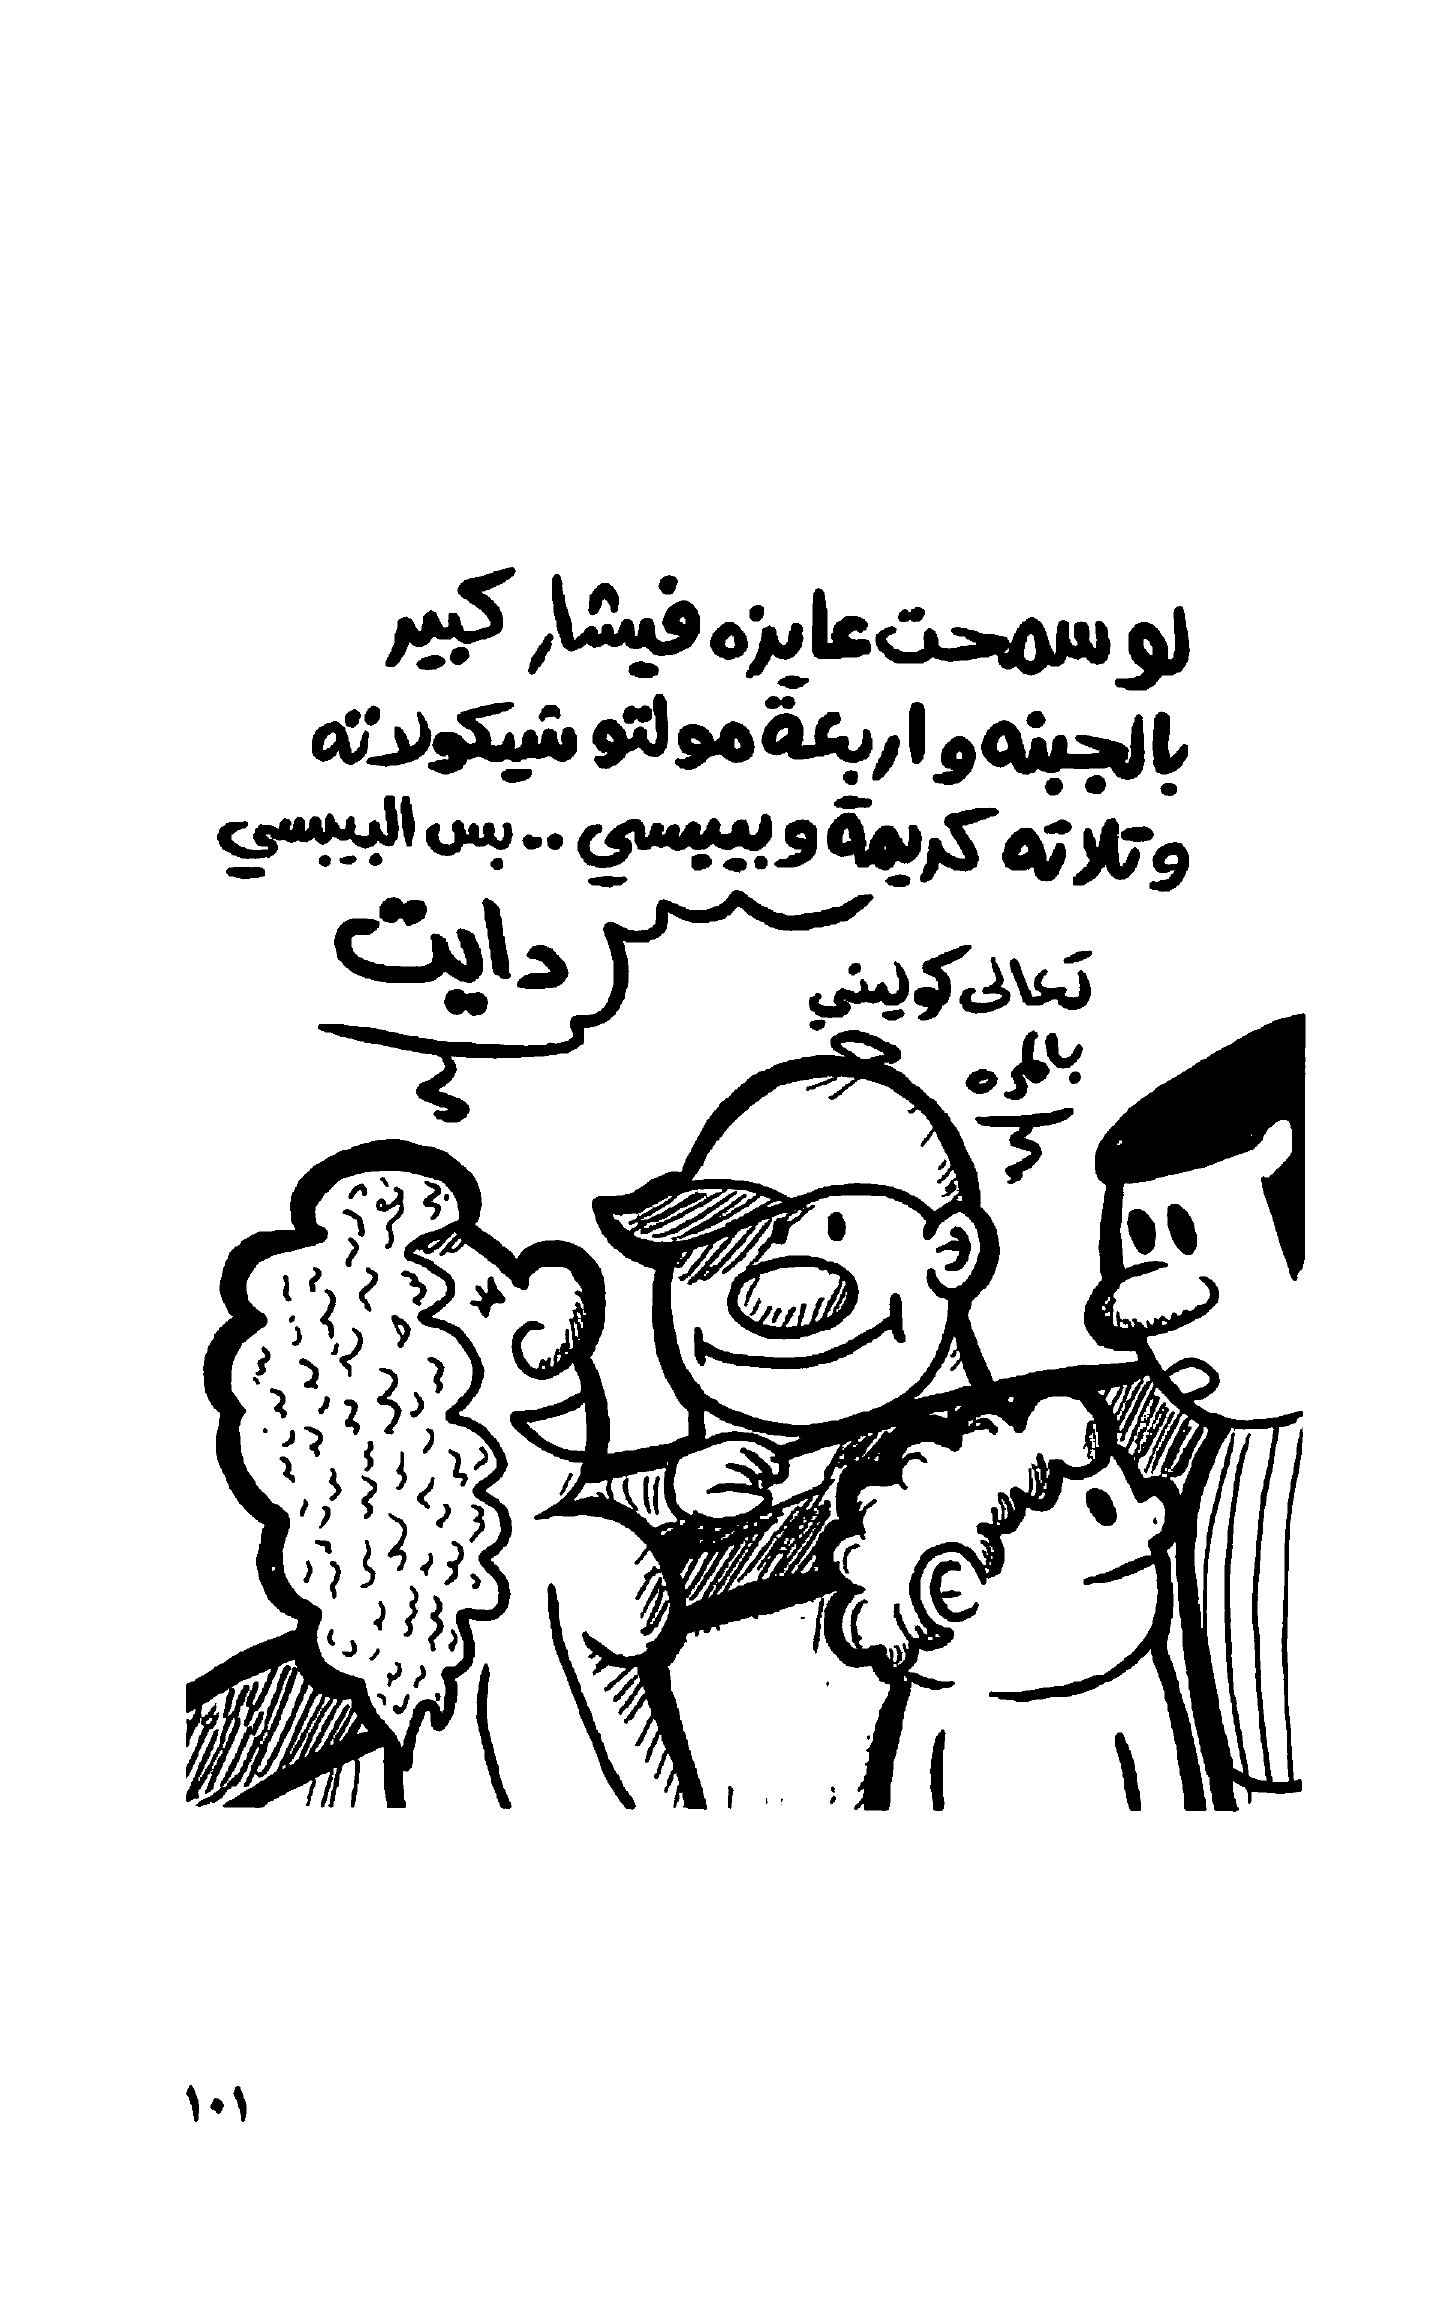 لو سمحت عايزه فيشار كبير
بالجبنه و اربعة مولتو شيكولاته
وتلاته كريمة وبيبسي .. بس البيبسي
دايت
تعالى كوليني
بالمره
١٠١